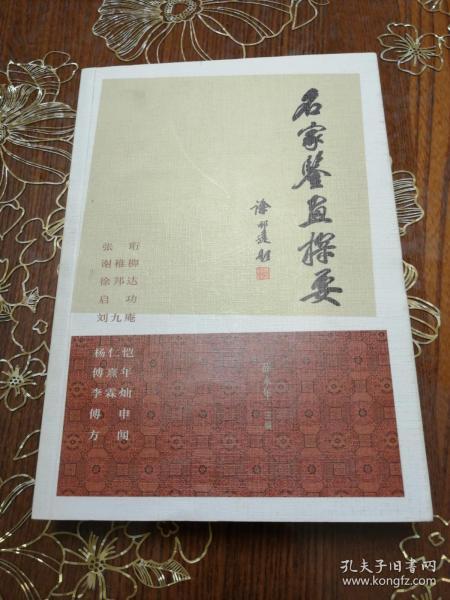 名家鉴画探要
徐邦达题
张珩
谢稚柳
徐邦达
启功
刘九庵
杨仁恺
傅熹年
李霖灿
傅申
方闻
薛永年 主编
孔夫子旧书网
www.kongfz.com